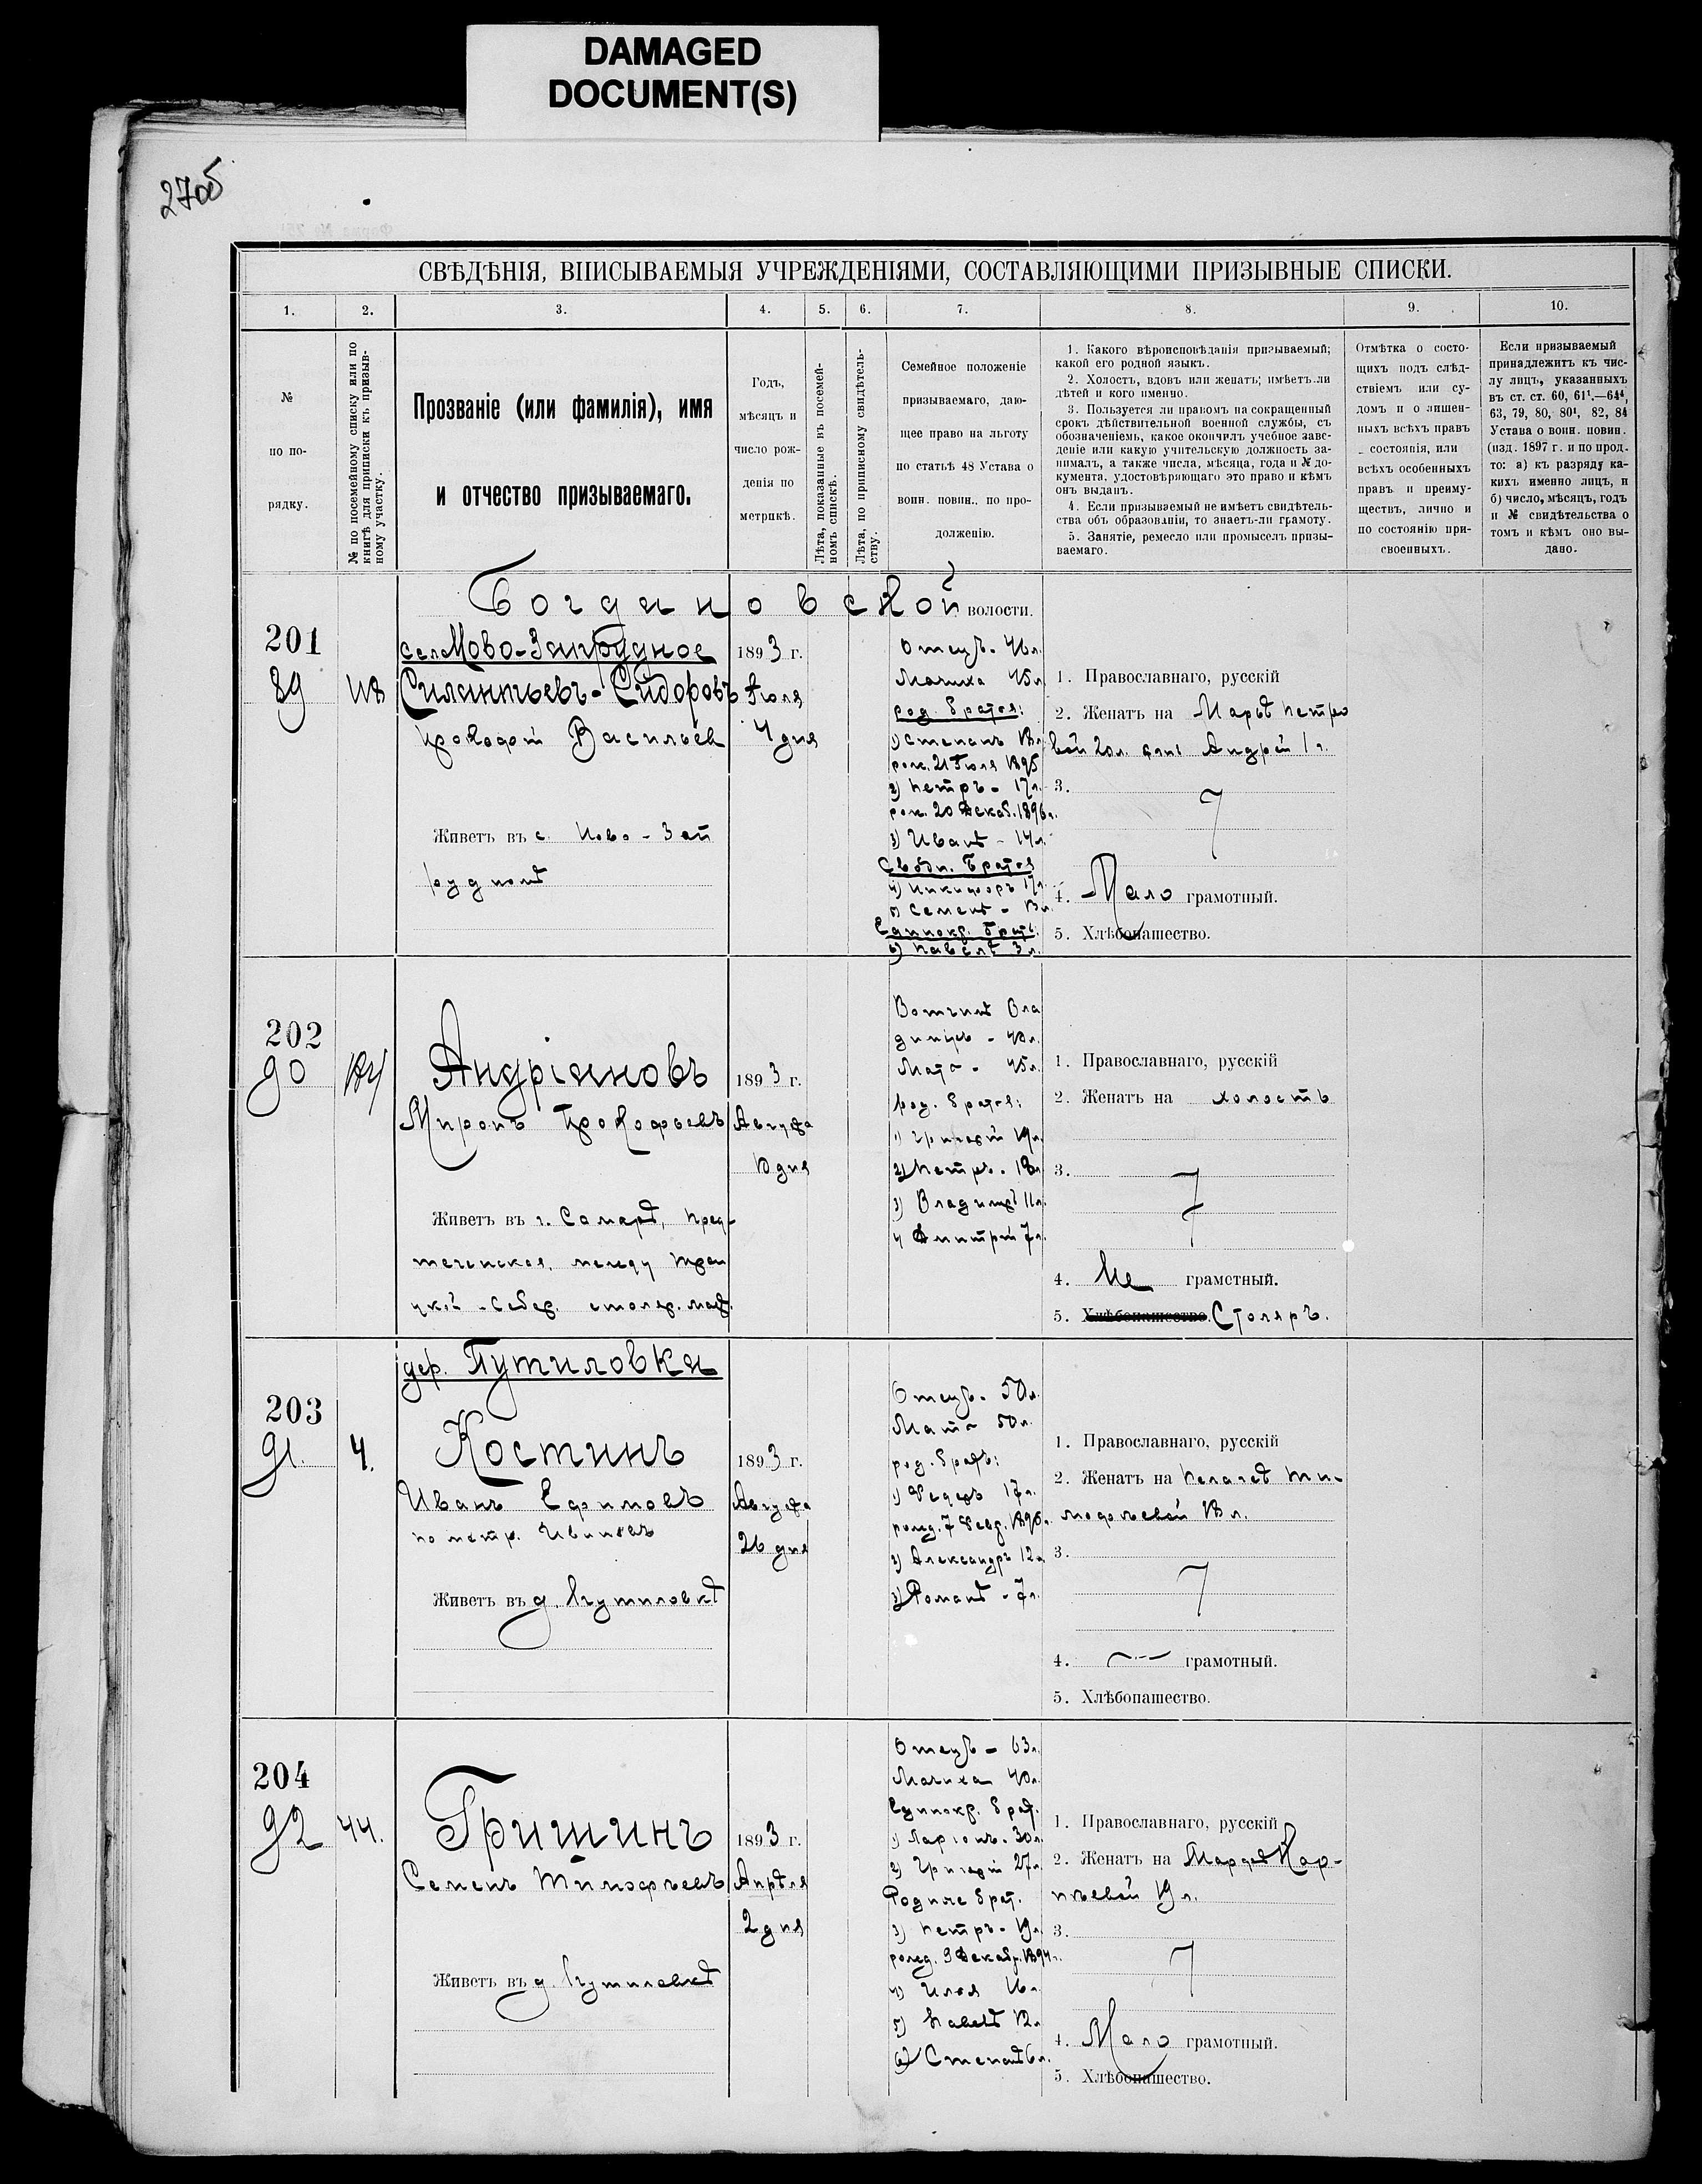 DAMAGED
DOCUMENT(S)
27об
СВѢДѢНІЯ, ВПИСЫВАЕМЫЯ УЧРЕЖДЕНІЯМИ, СОСТАВЛЯЮЩИМИ ПРИЗЫВНЫЕ СПИСКИ.
1. 2. 3. 4. 5. 6. 7. 8. 9. 10.
№
по по-
рядку.
№ по посемейному списку или по
книгѣ для приписки къ призыв-
ному участку.
Прозваніе (или фамилія), имя
и отчество призываемаго.
Годъ,
мѣсяцъ и
число рож-
денія по
метрикѣ.
Лѣта, показанные въ посемей-
номъ спискѣ.
Лѣта, по приписному свидѣтель-
ству.
Семейное положеніе
призываемаго, даю-
щее право на льготу
по статьѣ 48 Устава о
воин. повин., по про-
долженію.
1. Какого вѣроисповѣданія призываемый;
какой его родной языкъ.
2. Холостъ, вдовъ или женатъ; имѣетъ-ли
дѣтей и кого именно.
3. Пользуется ли правомъ на сокращенный
срокъ дѣйствительной военной службы, съ
обозначеніемъ, какое окончилъ учебное заве-
деніе или какую учительскую должность за-
нималъ, а также числа, мѣсяца, года и № до-
кумента, удостовѣряющаго это право и кѣмъ
онъ выданъ.
4. Если призываемый не имѣетъ свидѣтель-
ства объ образованіи, то знаетъ-ли грамоту.
5. Занятіе, ремесло или промыселъ призы-
ваемаго.
Отмѣтка о состо-
щихъ подъ слѣд-
ствіемъ или су-
домъ и о лишен-
ныхъ всѣхъ правъ
состоянія, или
всѣхъ особенныхъ
правъ и преиму-
ществъ, лично и
по состоянію при-
своенныхъ.
Если призываемый
принадлежитъ къ чис-
лу лицъ, указанныхъ
въ ст. ст. 60, 61¹.—64⁴,
63, 79, 80, 80¹, 82, 84
Устава о воин. повин.
(изд. 1897 г. и по прод-
то: а) къ разряду ка-
кихъ именно лицъ, и
б) число, мѣсяцъ, годъ
и № свидѣтельства о
томъ и кѣмъ оно вы-
дано.
Богдановской волости.
201
89
село Ново-Запрудное
Силантьевъ-Сидоровъ
Прокофій Васильев
Живетъ въ с. Ново-Зап
рудномъ
1893 г.
Іюля
4 дня
Отецъ - 46 л.
Мачиха 45 л.
род. братья:
1) Степанъ 18 л.
рож. 21 Іюля 1895
2) Петръ - 17 л.
рож. 20 Декаб. 1896 г.
3) Иванъ - 14 л.
Сводн. братья
4) Никифоръ 17 л.
5) Семенъ - 13 л.
Единокр. братъ.
6) Павелъ 3 л.
1. Православнаго, русскій
2. Женатъ на Марьѣ Петро
вой 20 л. сынъ Андрей 1 г.
3.
4. Мало грамотный.
5. Хлѣбопашество.
202
90
184
Андріановъ
Миронъ Прокофьевъ
Живетъ въ г. Самарѣ, Пред-
теченская, между Трои
цкой -Сабер. столяр. маст.
1893 г.
Августа
10 дня
Вотчимъ Вла
диміръ - 40 л.
Мать - 45 л.
род. братья:
1) Григорій 19 л.
2) Петръ - 18 л.
3) Владиміръ 11 л.
4 Дмитрій 7 л.
1. Православнаго, русскій
2. Женатъ на холостъ
3.
4. Не грамотный.
5. Хлѣбопашество. Столяръ.
дер. Путиловка
203
91.
4.
Костинъ
Иванъ Ефимовъ
по метр. Ивинъ
Живетъ въ д. Путиловкѣ
1893 г.
Августа
26 дня
Отецъ - 50 л.
Мать 50 л.
род. братъ:
1) Федоръ 17 л.
рожд. 7 Февр. 1896 г.
2) Александръ 12 л.
3) Романъ - 7 л.
1. Православнаго, русскій
2. Женатъ на Пелагеѣ Ти-
мофѣевой 18 л.
3.
4. грамотный.
5. Хлѣбопашество.
204
92
44.
Гришинъ
Семенъ Тимофѣевъ
Живетъ въ д. Путиловкѣ
1893 г.
Апрѣля
2 дня
Отецъ - 63 л.
Мачиха 40 л.
Единокр. брат.
1) Ларіонъ - 30 л.
2) Григорій 27 л.
Родные брат.
3) Петръ - 19 л.
рожд. 9 Декабр. 1894 г.
4) Илья 16 л.
5) Павелъ 12 л.
6) Степанъ 6 л.
1. Православнаго, русскій
2. Женатъ на Марфѣ Кар-
пѣевой 19 л.
3.
4. Мало грамотный.
5. Хлѣбопашество.